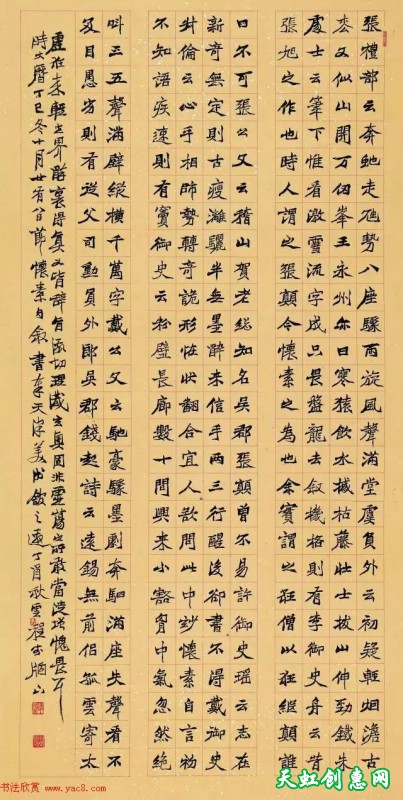 張禮部云奔虵走虺勢入座驟雨旋風聲滿堂盧員外云初疑輕烟澹古
松又似山開万仞峯王永州邕曰寒猿飲水撼枯藤壯士拔山伸勁鐵朱
處士云筆下惟看激電流字成只畏盤龍走敘機格則有李御史舟云昔
張旭之作也時人謂之張顛今懷素之為也余實謂之狂僧以狂継顛誰
曰不可張公又云稽山賀老粗知名吳郡張顛曾不易許御史瑶云志在
新奇無定則古瘦灕驪半無墨醉來信手兩三行醒後卻書不得戴御史
叔倫云心手相師勢轉奇詭形怪狀翻合宜人欲問此中妙懷素自言初
不知語疾速則有竇御史云粉壁長廊數十間興來小豁胸中氣忽然絶
叫三五聲滿壁縱橫千萬字戴公又云馳豪驟墨列奔駟滿座失聲看不
及目愚劣則有從父司勳員外郎吳郡錢起詩云遠錫無前侶孤雲寄太
虛狂來輕世界醉裏得真又皆辭旨激切理識玄奧固非虛蕩之所敢當徒增愧畏耳
時大曆丁巳冬十月廿有八日節懷素自敘書奉天丁酉秋雲程
书法欣赏 www.yac8.com
天虹创惠网